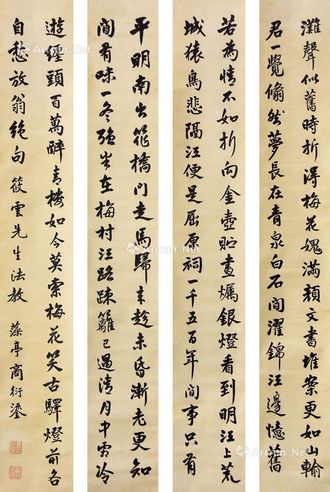 灘聲似舊時折得梅花愧滿顏文書堆案更如山輸
君一覺翛然夢長在青泉白石間濯錦江邊憶舊
若為情不如折向金壺貯畫燭銀燈看到明江上荒
城猿鳥悲隔江便是屈原祠一千五百年間事只有
平明南出笮橋門走馬歸來趁未昏漸老更知
閒有味一冬強半在梅村江路疎籬已過清月中霜冷
遊纏頭百萬醉青樓如今莫索梅花笑古驛燈前各
自愁放翁絕句 筱雲先生法教 藻亭商衍鎏